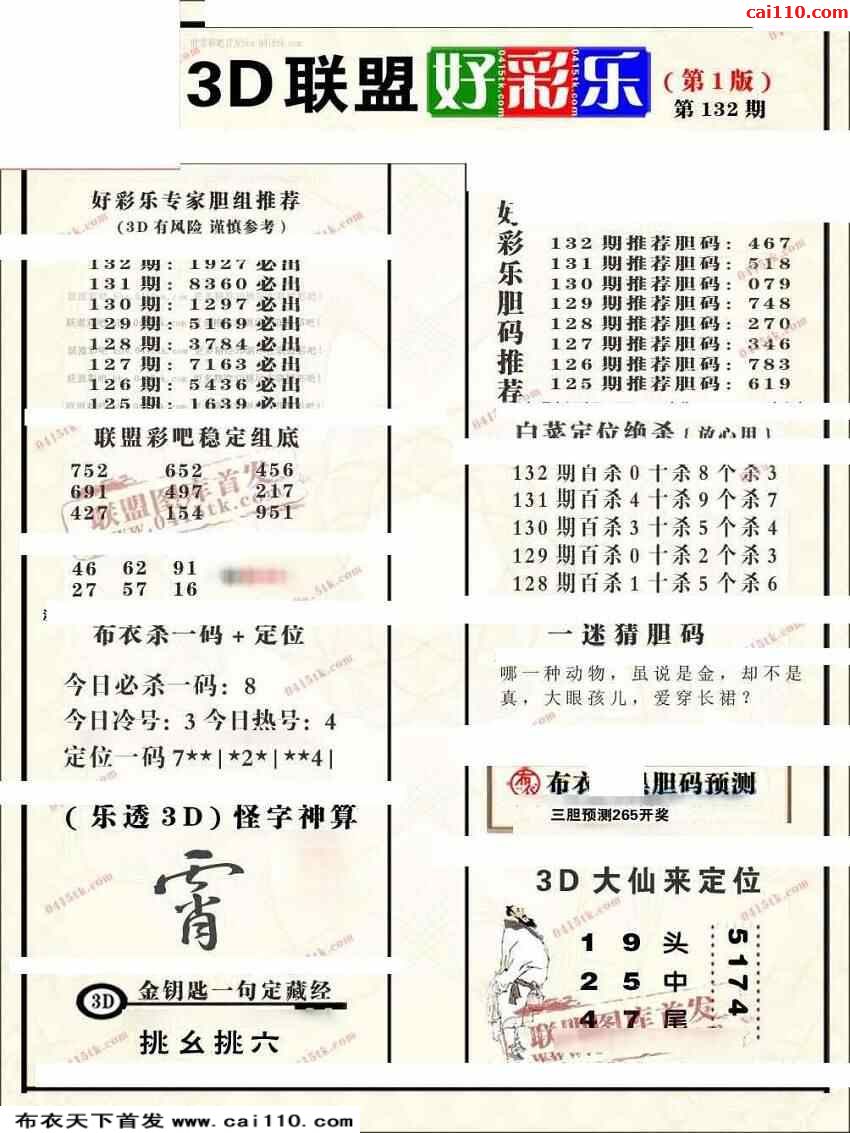 cai110.com
3D联盟好彩乐(第1版)
第132期
好彩乐专家胆组推荐
(3D有风险 谨慎参考)
132期: 1927必出
131期: 8360必出
130期: 1297必出
129期: 5169必出
128期: 3784必出
127期: 7163必出
126期: 5436必出
125期: 1639必出
联盟彩吧稳定组底
752 652 456
691 497 217
427 154 951
46 62 91
27 57 16
布衣杀一码+定位
今日必杀一码: 8
今日冷号: 3 今日热号: 4
定位一码7**|*2*|**4|
(乐透3D)怪字神算
霄
3D 金钥匙一句定藏经
挑幺挑六
好彩乐胆码推荐
132期推荐胆码: 467
131期推荐胆码: 518
130期推荐胆码: 079
129期推荐胆码: 748
128期推荐胆码: 270
127期推荐胆码: 346
126期推荐胆码: 783
125期推荐胆码: 619
白菜定位绝杀(放心用)
132期百杀0十杀8个杀3
131期百杀4十杀9个杀7
130期百杀3十杀5个杀4
129期百杀0十杀2个杀3
128期百杀1十杀5个杀6
一迷猜胆码
哪一种动物，虽说是金，却不是
真，大眼孩儿，爱穿长裙？
布衣 胆码预测
三胆预测265开奖
3D大仙来定位
1 9 头
2 5 中
4 7 尾
5174
联盟图库首发
www.0415tk.com
联盟图库首发
0415tk.com
布衣天下首发 www.cai110.com